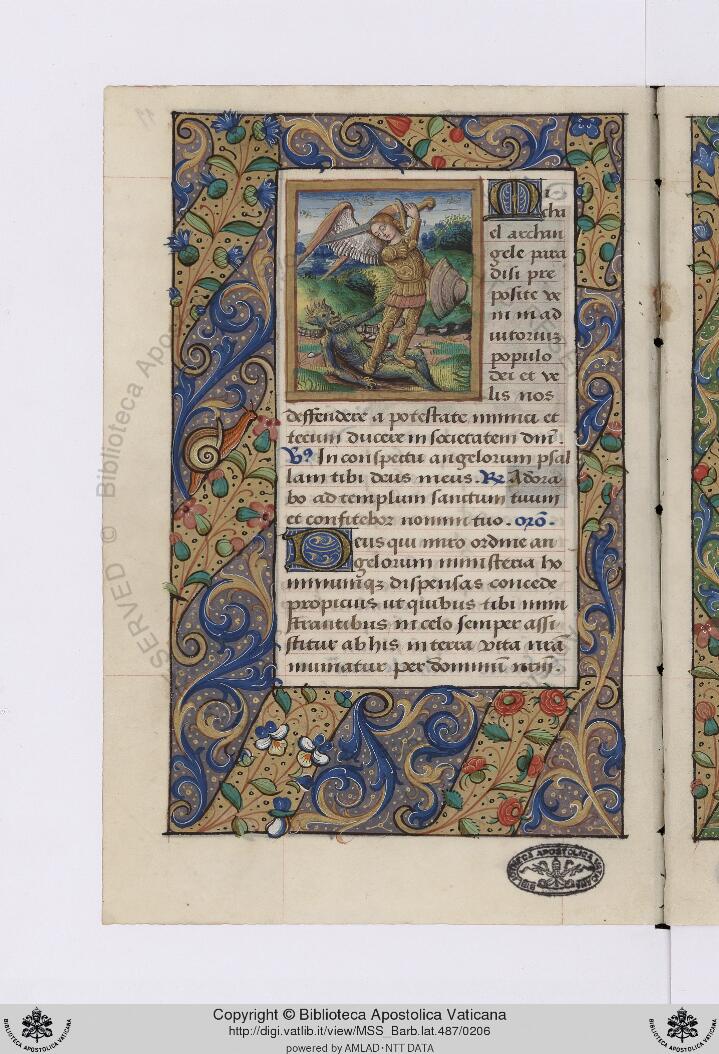 Mi
cha
el archan
gele para
disi pre
posite ve
ni in ad
iutoriuꝫ
populo
dei et ve
lis nos
deffendere a potestate inimici et
tecum ducere in societatem dnī.
℣ꝰ In conspectu angelorum psal
lam tibi deus meus. ℞ Adora
bo ad templum sanctum tuum
et confitebor nomini tuo. orō.
Deus qui miro ordine an
gelorum ministeria ho
minumqꝫ dispensas concede
propicius ut quibus tibi mini
strantibus in celo semper assi
stitur ab his in terra vita nrā
muniatur per dominū nrm̄.
BIBLIOTECA APOSTOLICA VATICANA
Copyright © Biblioteca Apostolica Vaticana
http://digi.vatlib.it/view/MSS_Barb.lat.487/0206
powered by AMLAD·NTT DATA